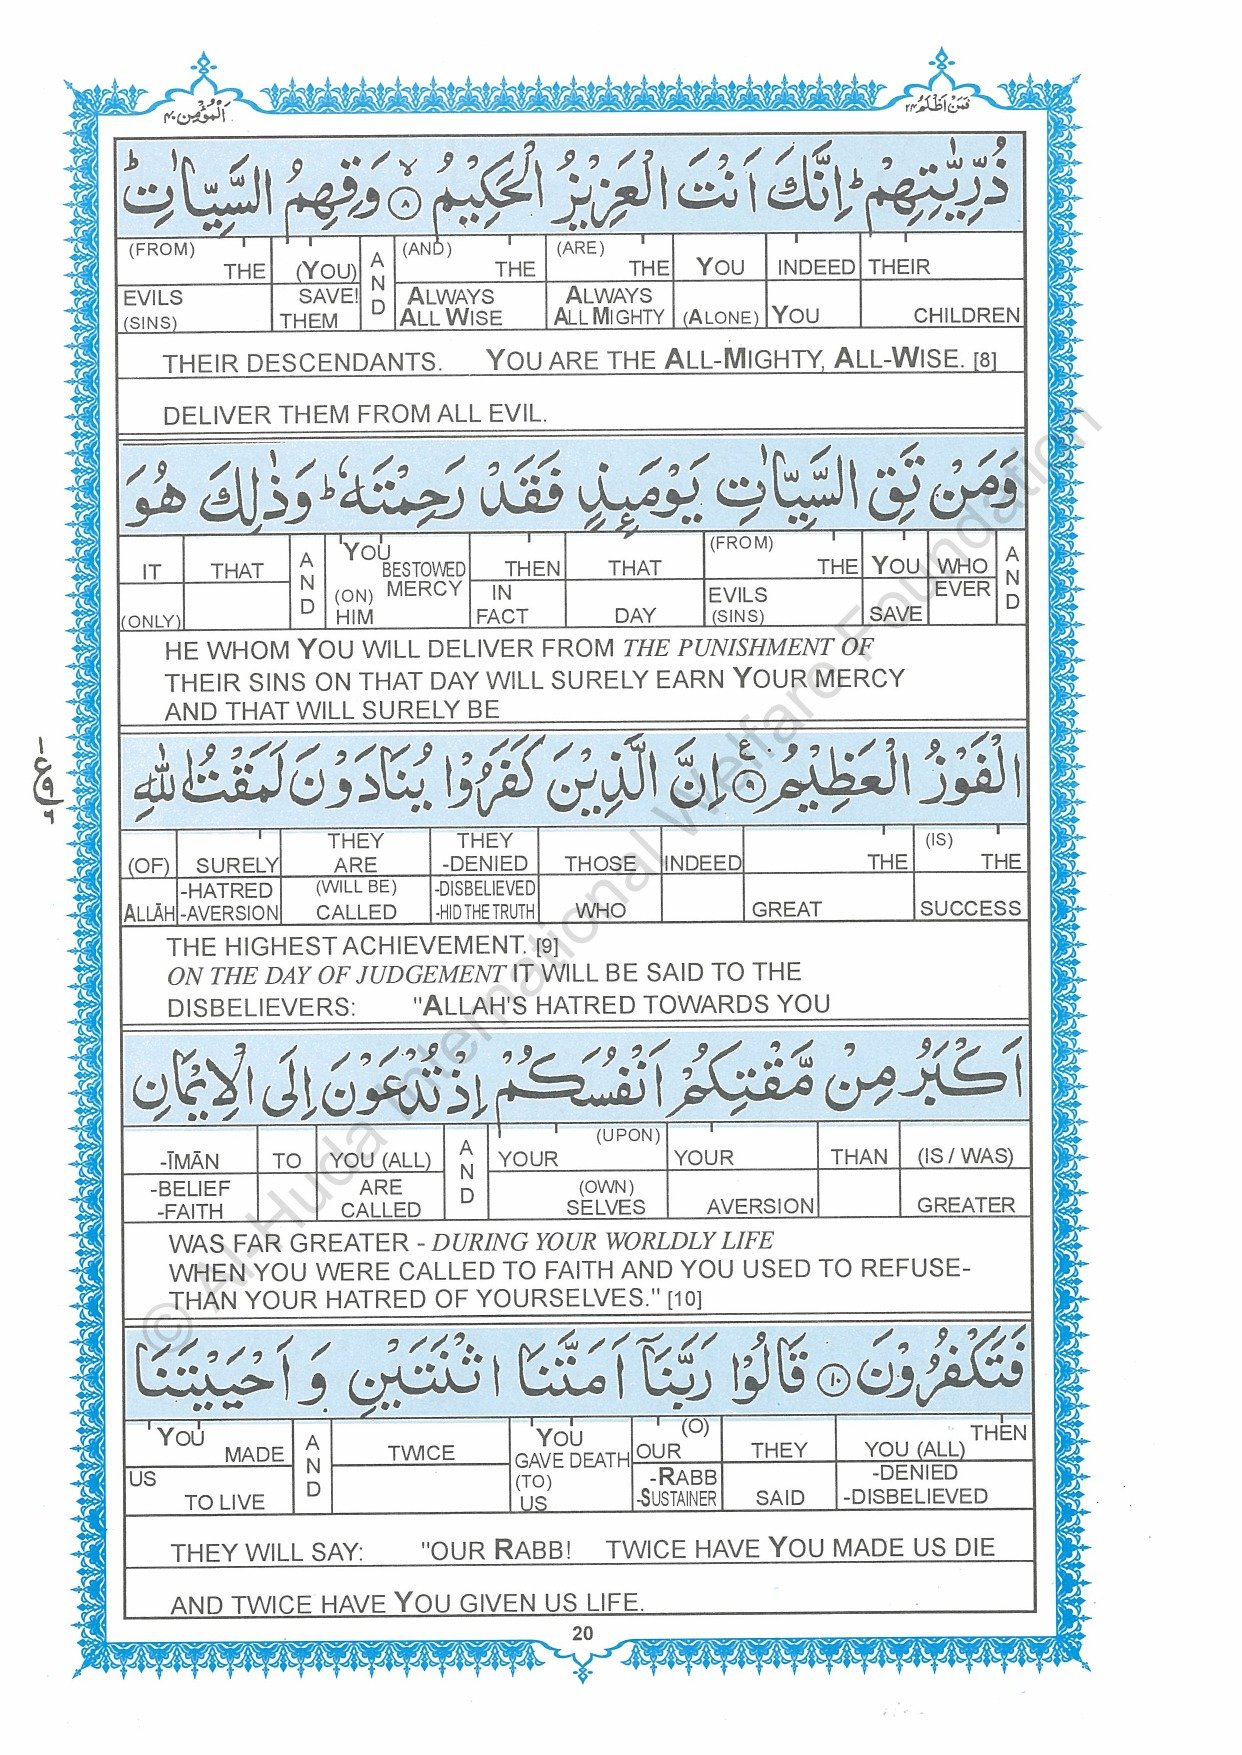 اَلْمُؤْمِن ٤٠
فَمَنْ اَظْلَمُ ٢٤
ذُرِّيّٰتِهِمْ ؕ اِنَّكَ اَنْتَ الْعَزِيْزُ الْحَكِيْمُ ۙ ٨ وَقِهِمُ السَّيِّاٰتِ ؕ
(FROM) THE (YOU) AND (AND) THE (ARE) THE YOU INDEED THEIR
EVILS (SINS) SAVE! THEM ALWAYS ALL WISE ALWAYS ALL MIGHTY (ALONE) YOU CHILDREN
THEIR DESCENDANTS. YOU ARE THE ALL-MIGHTY, ALL-WISE. [8]
DELIVER THEM FROM ALL EVIL.
وَمَنْ تَقِ السَّيِّاٰتِ يَوْمَئِذٍ فَقَدْ رَحِمْتَهٗ ؕ وَذٰلِكَ هُوَ
IT THAT AND YOU BESTOWED THEN THAT (FROM) THE YOU WHO AND
(ONLY) (ON) HIM MERCY IN FACT DAY EVILS (SINS) SAVE EVER
HE WHOM YOU WILL DELIVER FROM THE PUNISHMENT OF
THEIR SINS ON THAT DAY WILL SURELY EARN YOUR MERCY
AND THAT WILL SURELY BE
الْفَوْزُ الْعَظِيْمُ ٩ ع اِنَّ الَّذِيْنَ كَفَرُوْا يُنَادَوْنَ لَمَقْتُ اللّٰهِ
١ ع ٩ ٦
(OF) SURELY THEY ARE THEY -DENIED THOSE INDEED THE (IS) THE
ALLĀH -HATRED -AVERSION (WILL BE) CALLED -DISBELIEVED -HID THE TRUTH WHO GREAT SUCCESS
THE HIGHEST ACHIEVEMENT. [9]
ON THE DAY OF JUDGEMENT IT WILL BE SAID TO THE
DISBELIEVERS: "ALLAH'S HATRED TOWARDS YOU
اَكْبَرُ مِنْ مَّقْتِكُمْ اَنْفُسَكُمْ اِذْ تُدْعَوْنَ اِلَى الْاِيْمَانِ
-ĪMĀN TO YOU (ALL) AND YOUR (UPON) YOUR THAN (IS / WAS)
-BELIEF -FAITH ARE CALLED (OWN) SELVES AVERSION GREATER
WAS FAR GREATER - DURING YOUR WORLDLY LIFE
WHEN YOU WERE CALLED TO FAITH AND YOU USED TO REFUSE-
THAN YOUR HATRED OF YOURSELVES." [10]
فَتَكْفُرُوْنَ ١٠ قَالُوْا رَبَّنَاۤ اَمَتَّنَا اثْنَتَيْنِ وَ اَحْيَيْتَنَا
YOU MADE AND TWICE YOU GAVE DEATH (O) OUR THEY THEN YOU (ALL)
US TO LIVE (TO) US -RABB -SUSTAINER SAID -DENIED -DISBELIEVED
THEY WILL SAY: "OUR RABB! TWICE HAVE YOU MADE US DIE
AND TWICE HAVE YOU GIVEN US LIFE.
20
© Al-Huda International Welfare Foundation